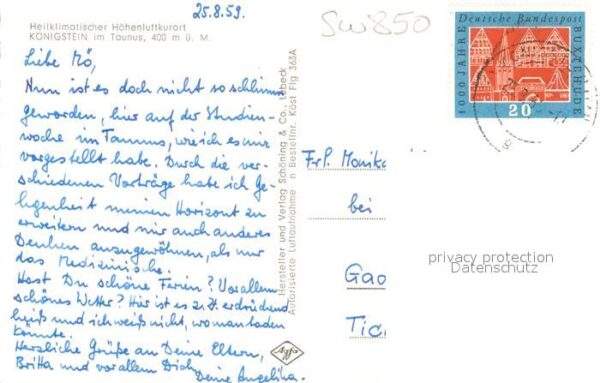 25.8.59.
SW850
Heilklimatischer Höhenluftkurort
KÖNIGSTEIN im Taunus, 400 m ü. M.
Liebe Mö,
Nun ist es doch nicht so schlimm
geworden, hier auf der Studien-
woche im Taunus, wie ich es mir
vorgestellt habe. Durch die ver-
schiedenen Vorträge habe ich Ge-
legenheit meinen Horizont zu
erweitern und mir auch anderes
Denken anzugewöhnen, als nur
das Medizinische.
Hast Du schöne Ferien? Vorallem
schönes Wetter? Hier ist es z. Zt. erdrückend
heiß und ich weiß nicht, wo man baden
könnte.
Herzliche Grüße an Deine Eltern,
Britta und vor allem Dich
Deine Angelika.
Hersteller und Verlag Schöning & Co., Lübeck
Autorisierte Luftaufnahme n Bestellnr. Köst Flg 363A
Agfa
Deutsche Bundespost
1000 JAHRE
BUXTEHUDE
20
Frl. Monika
bei
Gao
Tic
privacy protection
Datenschutz